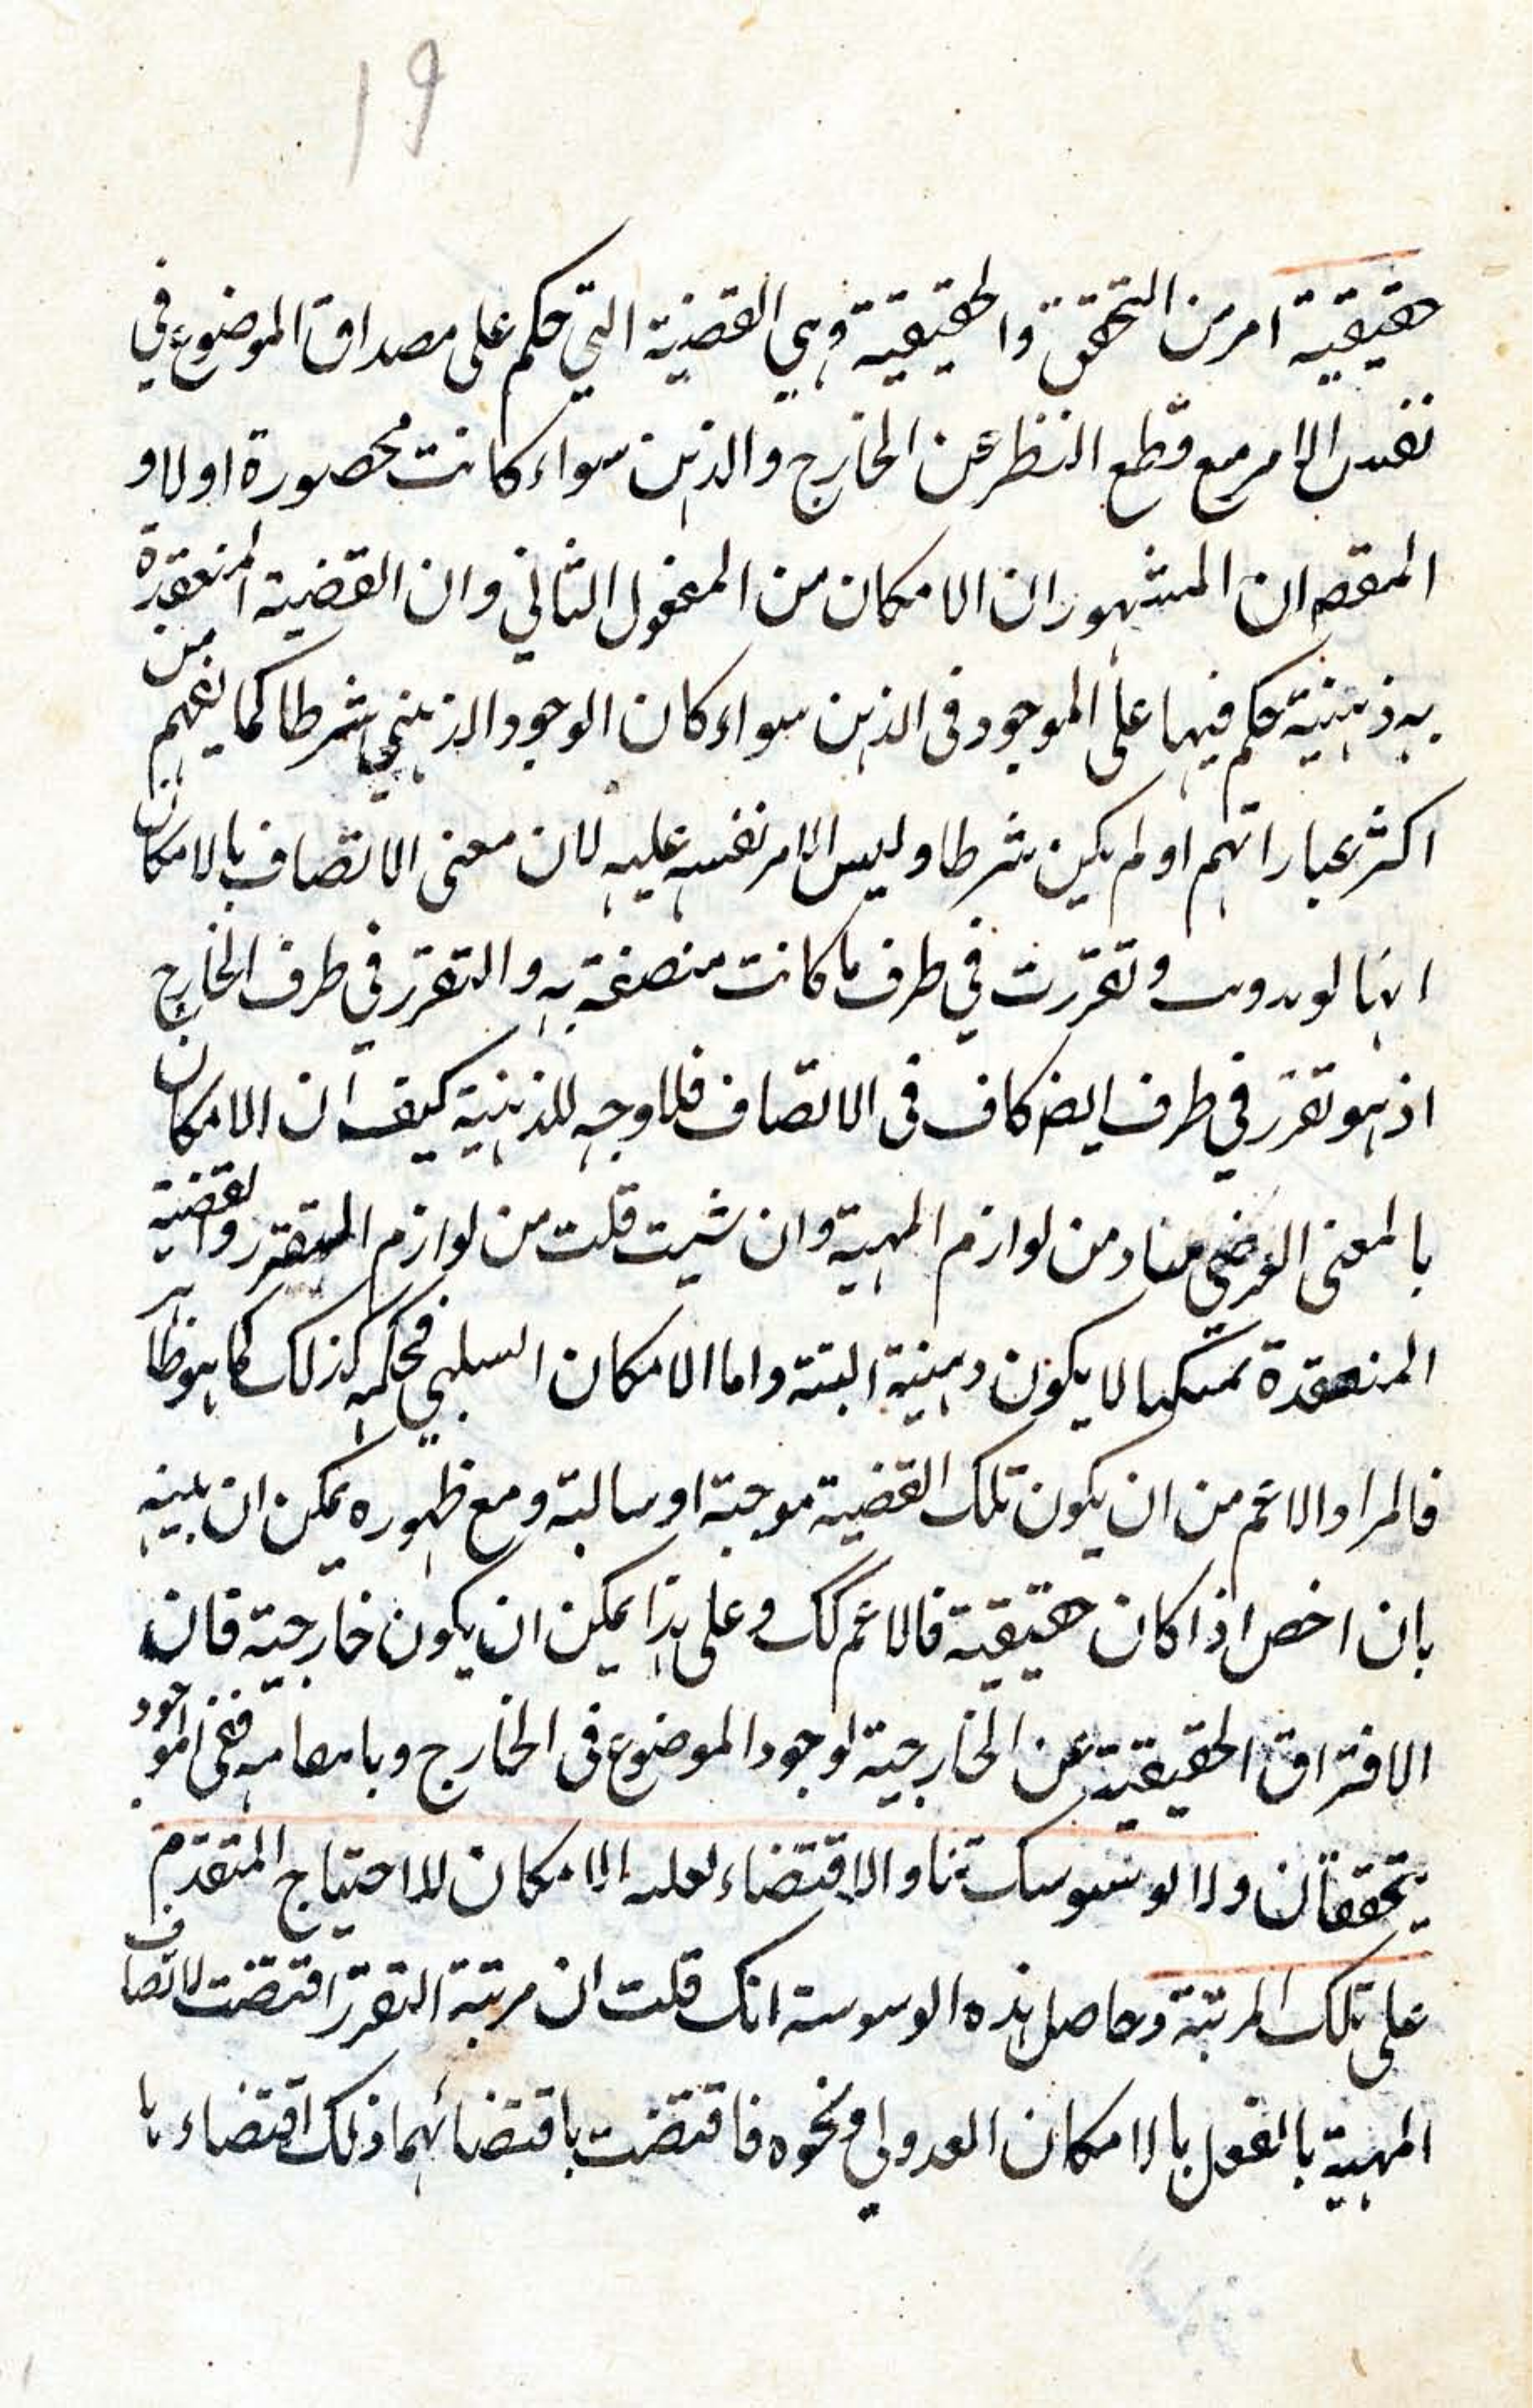 19
حقيقية امر من التحقق والحقيقية وهي القضية التي حكم على مصداق الموضوع في
نفس الامر مع قطع النظر عن الخارج والذهن سواء كانت محصورة اولا و
المقصه ان المشهور ان الامكان من المعقول الثاني وان القضية المنعقدة
به ذهنية حكم فيها على الموجود في الذهن سواء كان الوجود الذهني شرطا كما يفهم من
اكثر عباراتهم او لم يكن شرطا وليس الامر نفسه عليه لان معنى الاتصاف بالامكان
انها لو وتقررت في طرف ما كانت متصفة به والتقرر في طرف الخارج
اذ هو تقرر في طرف ايضه كاف في الاتصاف فلا وجه للذهنية كيف ان الامكان
بالمعنى العرضي من لوازم المهية وان شيت قلت من لوازم المتقرر والقضية
المنعقدة لا يكون ذهنية البتة واما الامكان السلبي فحكمه كذلك كما هو ظاهر
فالمراد الاعم من ان يكون تلك القضية موجبة او سالبة ومع ظهوره يمكن ان بينه
بان اخص اذا كان حقيقية فالاعم كك وعلى هذا يمكن ان يكون خارجية فان
الافتراق الحقيقية عن الخارجية لوجود الموضوع في الخارج ففي الموجود
يتحققان ولا الاقتضاء الامكان للاحتياج المتقدم
على تلك المرتبة وحاصل هذه الوسوسة انك قلت ان مرتبة التقرر اقتضت لاتصاف
المهية بالفعل بالامكان العدولي ونحوه فاقتضت باقتضائهما ذلك اقتضاء با